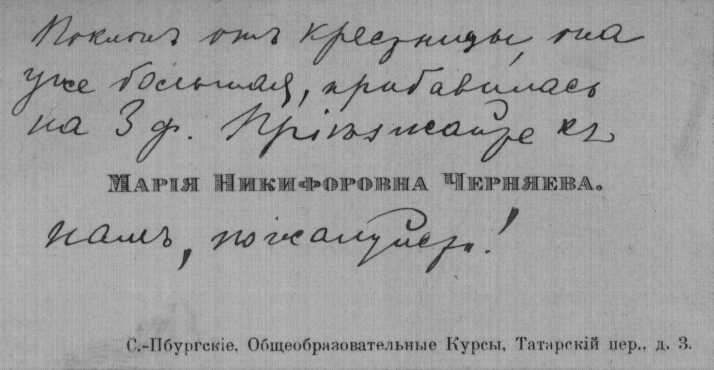 Поклонъ отъ крестницы, она
уже большая, прибавилась
на 3 ф. Пріѣзжайте къ
МАРІЯ НИКИФОРОВНА ЧЕРНЯЕВА.
намъ, пожалуйста!
С.-Пбургскіе. Общеобразовательные Курсы, Татарскій пер., д. 3.